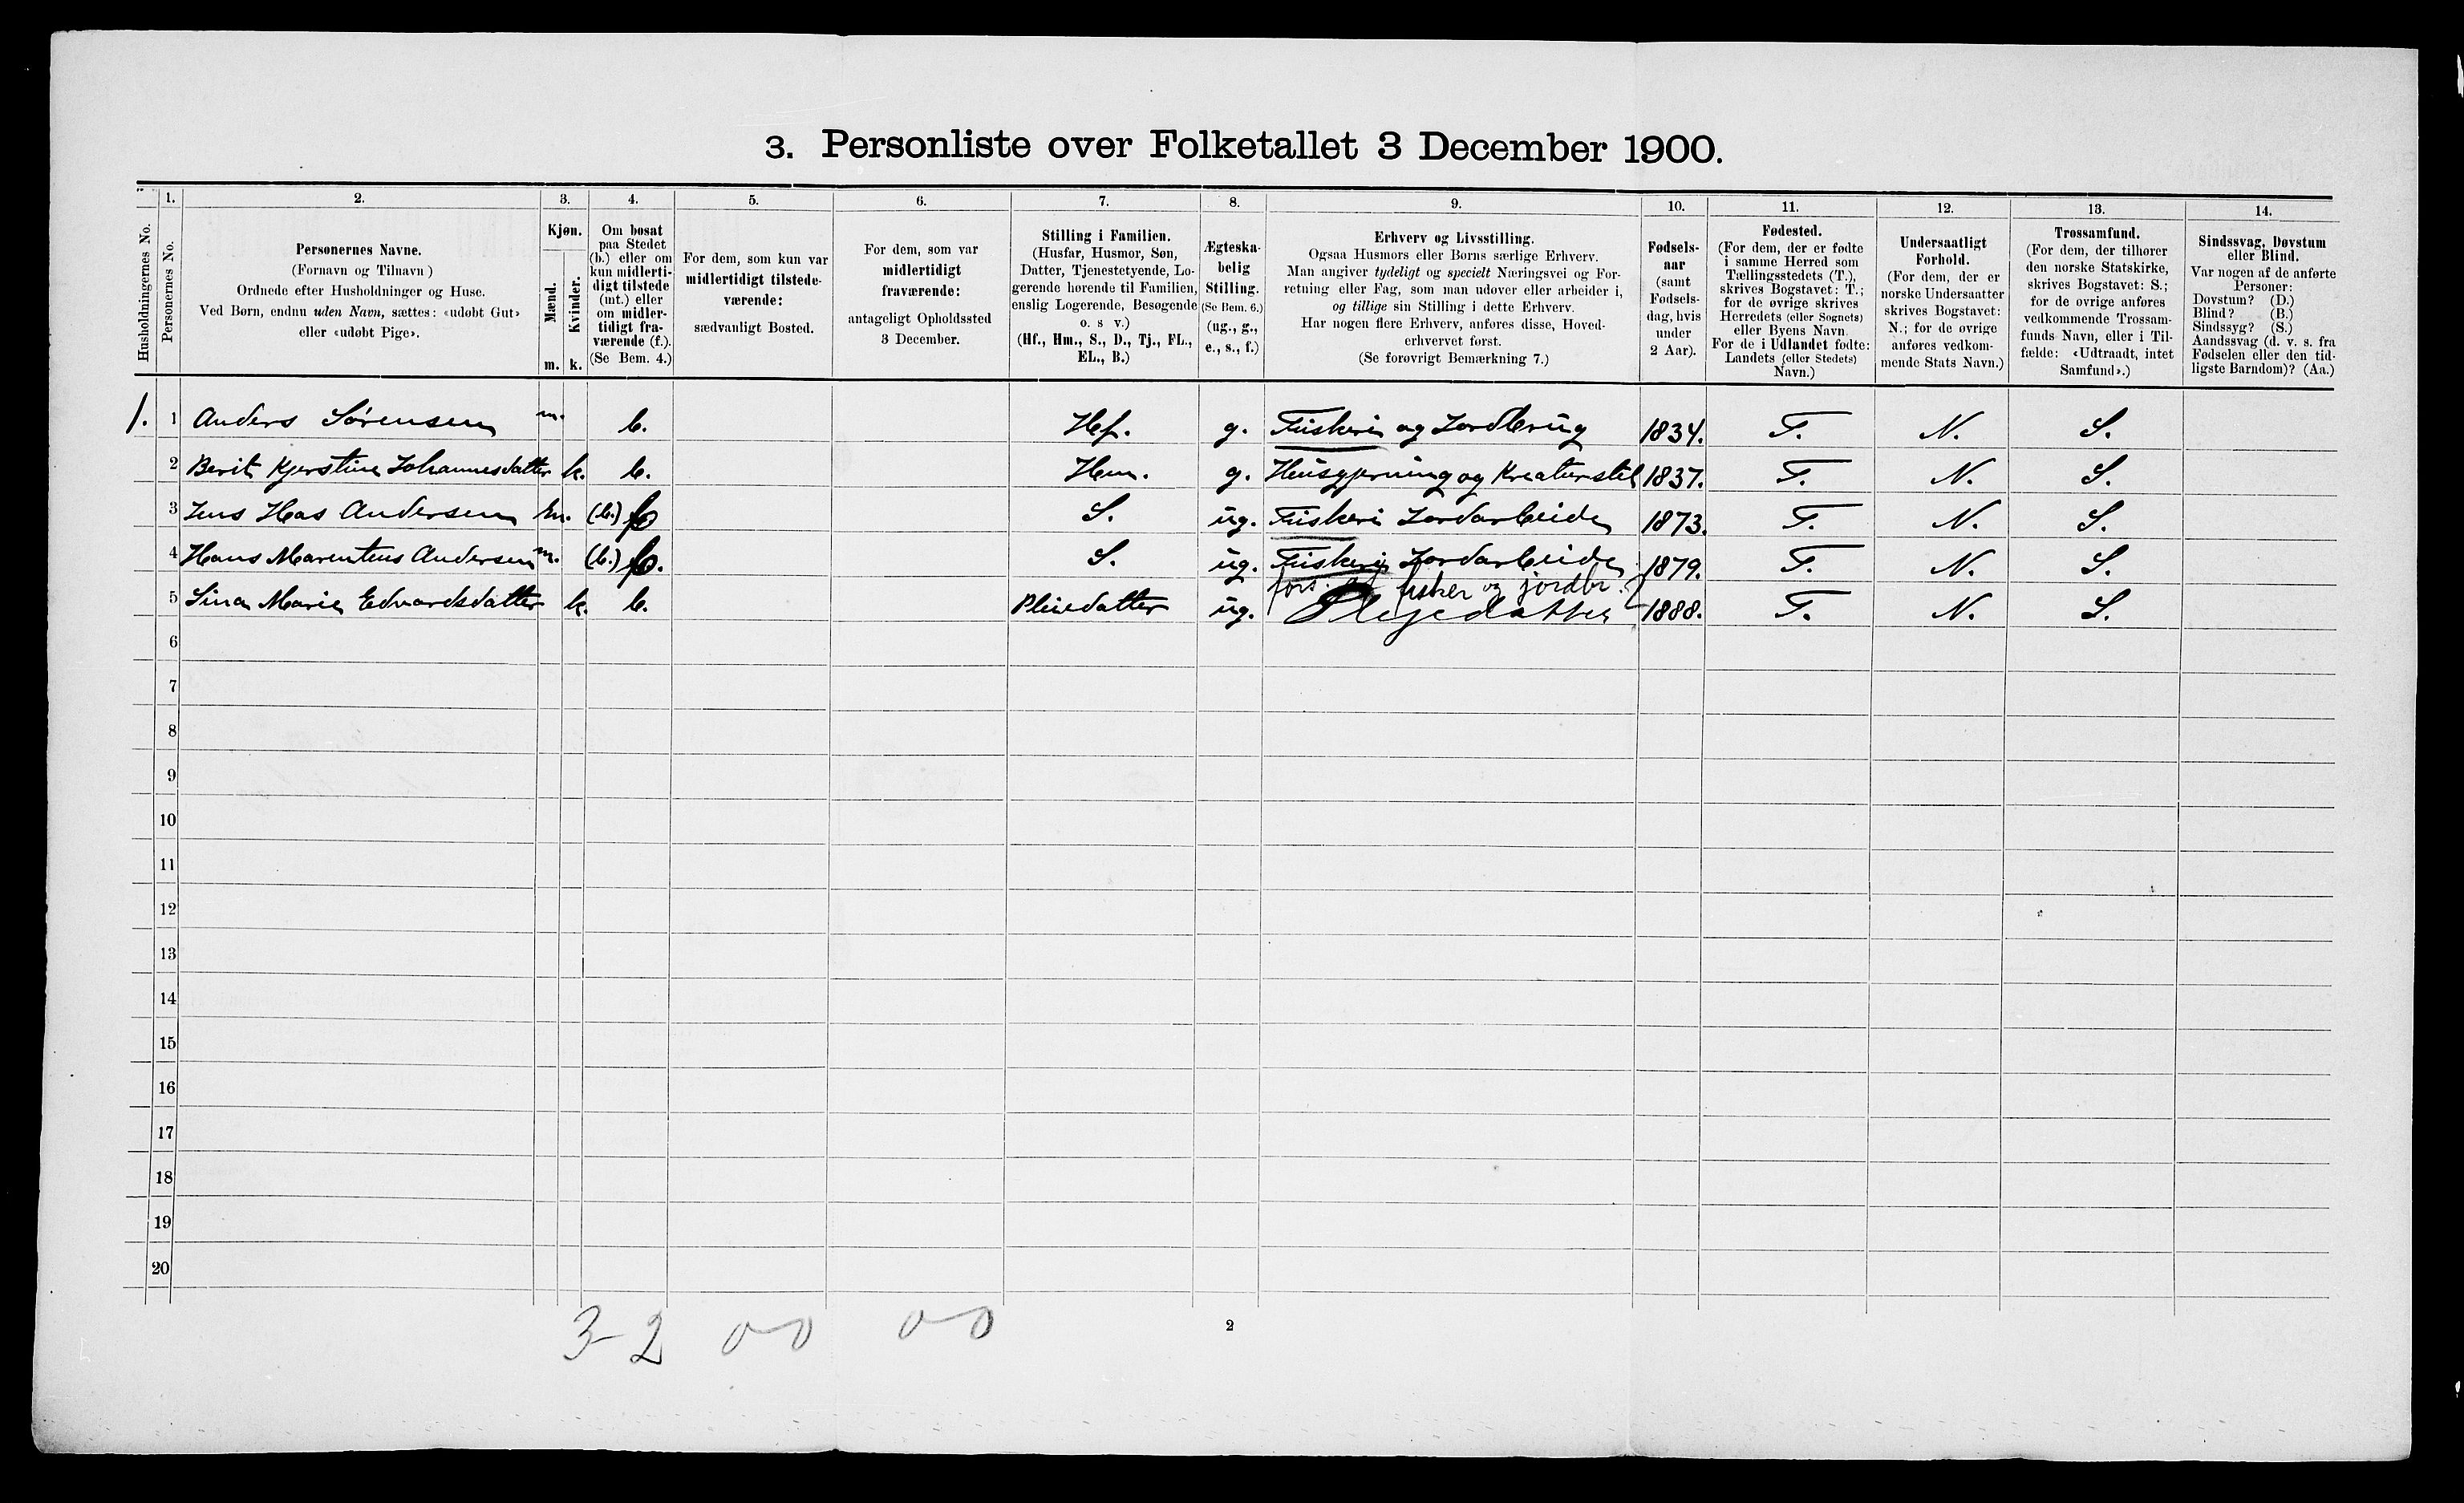 3. Personliste over Folketallet 3 December 1900.
1. 2. 3. 4. 5. 6. 7. 8. 9. 10. 11. 12. 13. 14.
Husholdningernes No.
Personernes No.
Personernes Navne.
(Fornavn og Tilnavn)
Ordnede efter Husholdninger og Huse.
Ved Børn, endnu uden Navn, sættes: «udøbt Gut»
eller «udøbt Pige».
Kjøn.
Mænd.
Kvinder.
m. k.
Om bosat
paa Stedet
(b.) eller om
kun midlerti-
digt tilstede
(mt.) eller
om midler-
tidigt fra-
værende (f.).
(Se Bem. 4.)
For dem, som kun var
midlertidigt tilstede-
værende:
sædvanligt Bosted.
For dem, som var
midlertidigt
fraværende:
antageligt Opholdssted
3 December.
Stilling i Familien.
(Husfar, Husmor, Søn,
Datter, Tjenestetyende, Lo-
gerende hørende til Familien,
enslig Logerende, Besøgende
o. s v.)
(Hf., Hm., S., D., Tj., FL.,
EL., B.)
Ægteska-
belig
Stilling.
(Se Bem. 6.)
(ug., g.,
e., s., f.)
Erhverv og Livsstilling.
Ogsaa Husmors eller Børns særlige Erhverv.
Man angiver tydeligt og specielt Næringsvei og For-
retning eller Fag, som man udøver eller arbeider i,
og tillige sin Stilling i dette Erhverv.
Har nogen flere Erhverv, anføres disse, Hoved-
erhvervet først.
(Se forøvrigt Bemærkning 7.)
Fødsels-
aar
(samt
Fødsels-
dag, hvis
under
2 Aar).
Fødested.
(For dem, der er fødte
i samme Herred som
Tællingsstedets (T.),
skrives Bogstavet: T.;
for de øvrige skrives
Herredets (eller Sognets)
eller Byens Navn.
For de i Udlandet fødte:
Landets (eller Stedets)
Navn.)
Undersaatligt
Forhold.
(For dem, der er
norske Undersaatter
skrives Bogstavet:
N.; for de øvrige
anføres vedkom-
mende Stats Navn.)
Trossamfund.
(For dem, der tilhører
den norske Statskirke,
skrives Bogstavet: S.;
for de øvrige anføres
vedkommende Trossam-
funds Navn, eller i Til-
fælde: «Udtraadt, intet
Samfund».)
Sindssvag, Døvstum
eller Blind.
Var nogen af de anførte
Personer:
Døvstum? (D.)
Blind? (B.)
Sindssyg? (S.)
Aandssvag (d. v. s. fra
Fødselen eller den tid-
ligste Barndom)? (Aa.)
1. 1 Anders Sørensen m. b. Hf. g. Fiskeri og Jordbrug 1834. T. N. S.
2 Berit Kjerstine Johannesdatter k. b. Hm. g. Husgjerning og Kreaturstel 1837. T. N. S.
3 Jens Has Andersen m. (b.) S. ug. Fiskeri Jordarbeide 1873. T. N. S.
4 Hans Marentius Andersen m. (b.) S. ug. Fiskeri Jordarbeide 1879. T. N. S.
fors. af fisker og jordbr.
5 Lina Marie Edvardsdatter k. b. Pleiedatter ug. Plejedatter 1888. T. N. S.
6
7
8
9
10
11
12
13
14
15
16
17
18
19
20
3-2 0-0 0-0
2